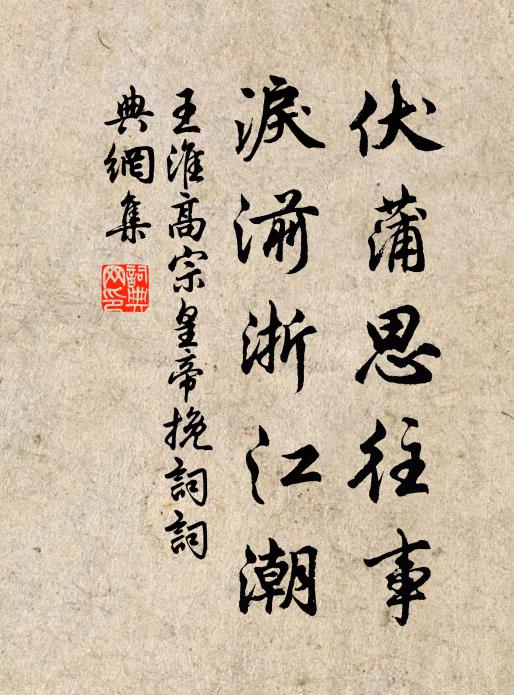 伏蒲思往事
淚湔浙江潮
王淮高宗皇帝挽詞詞
典網集
詞典網印